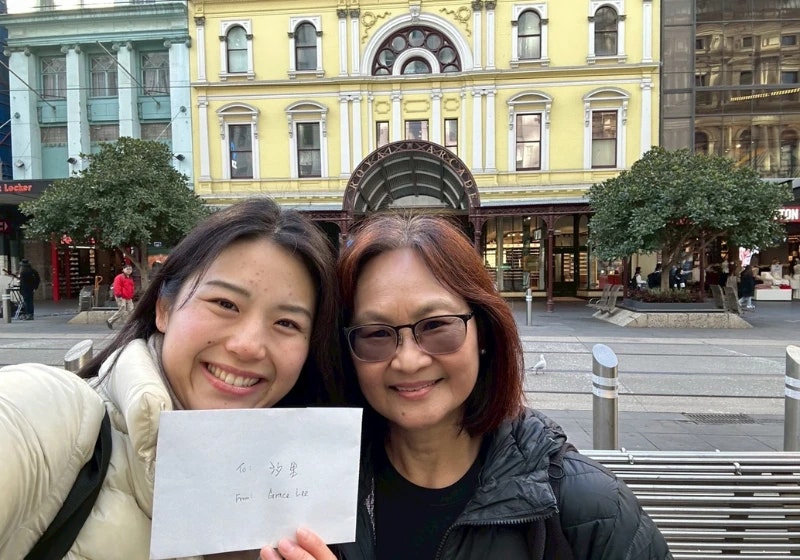 Locker
ROYAL ARCADE
TON
To: 汐里
From: Grace Lee